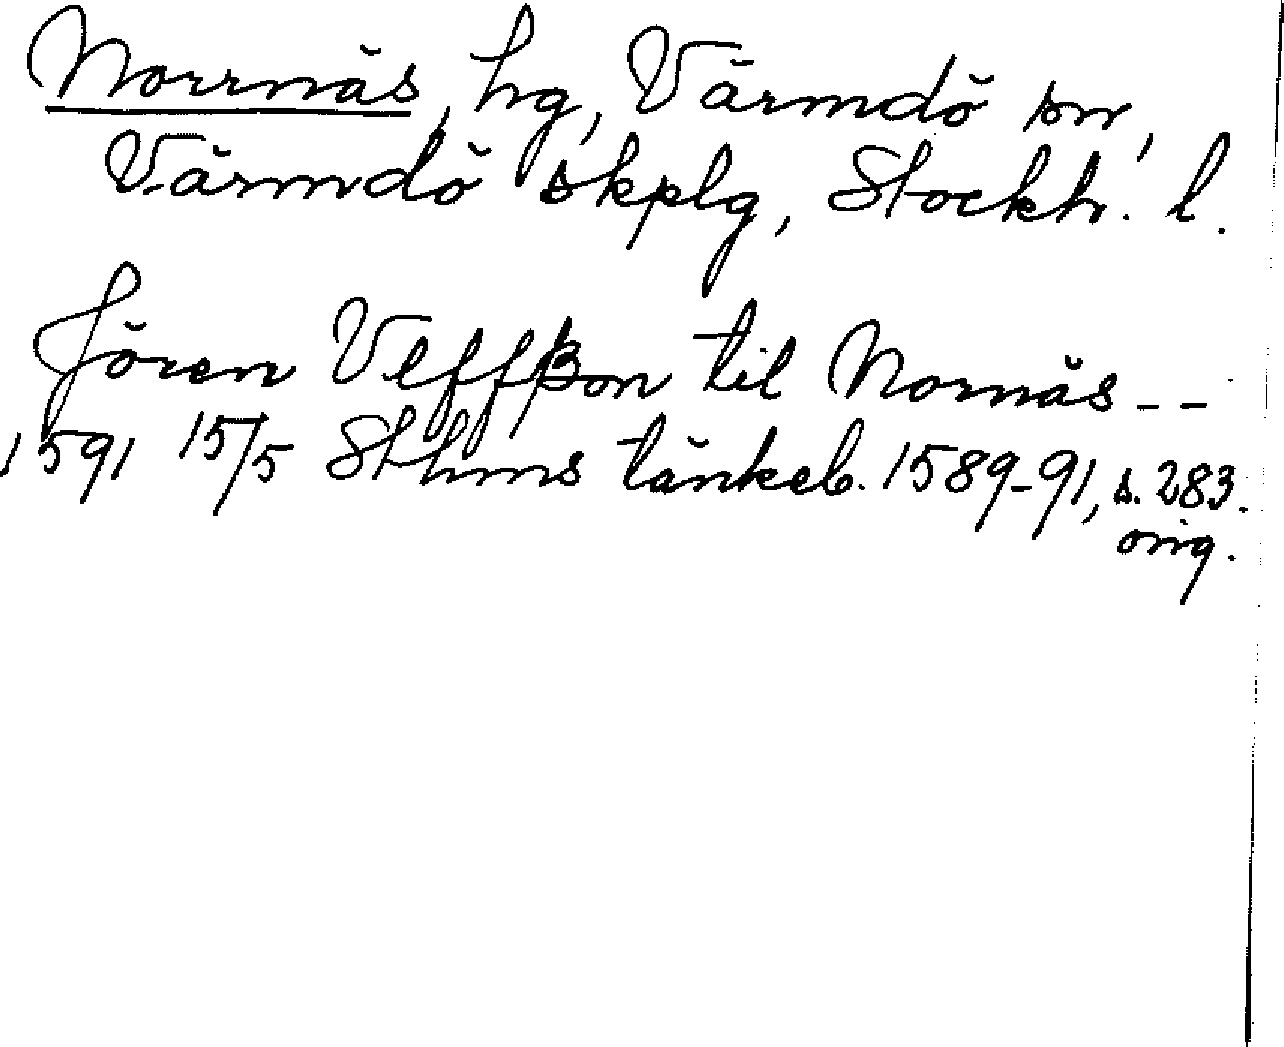 Norrnäs, hg, Värmdö sn,
Värmdö skplg, Stockh. l.
Jören Vlffßon til Nornäs - -
1591 15/5 Sthms tänkeb. 1589-91, s. 283.
orig.